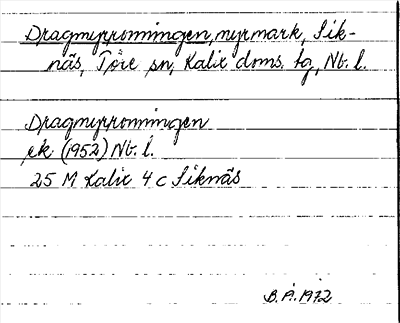 Dragmyrronningen, myrmark, Sik-
näs, Töre sn, Kalix doms. tg, Nb. l.
Dragmyrronningen
ek. (1952) Nb. l.
25 M Kalix 4 c Siknäs
B. Å. 1972